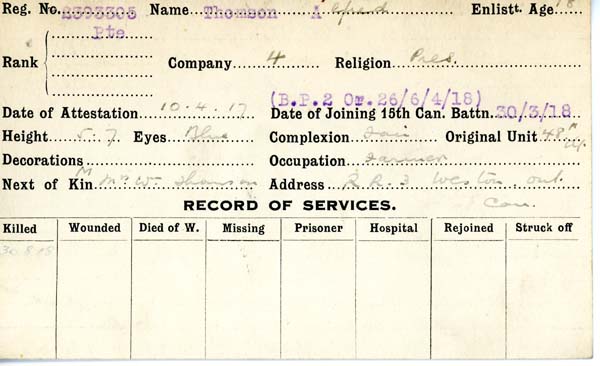 Reg. No. 2393305 Name Thomson A lfred Enlistt. Age 18
Pte
Rank Company 4 Religion Pres.
(B.P.2 Or. 26/6/4/18)
Date of Attestation 10.4.17 Date of Joining 15th Can. Battn. 30/3/18
Height 5.7 Eyes Blue Complexion Fair Original Unit 48th
Decorations Occupation Farmer
Next of Kin Mr Wm Thomson Address R.R. 3 Weston, Ont.
Can.
RECORD OF SERVICES.
Killed Wounded Died of W. Missing Prisoner Hospital Rejoined Struck off
30.8.18